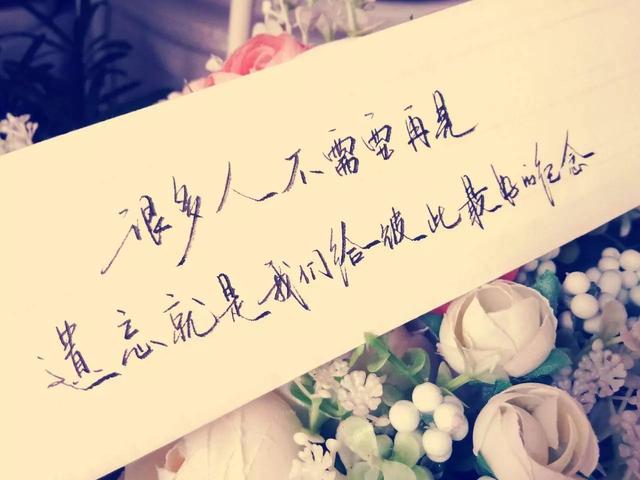 很多人不需要再见
遗忘就是我们给彼此最好的纪念